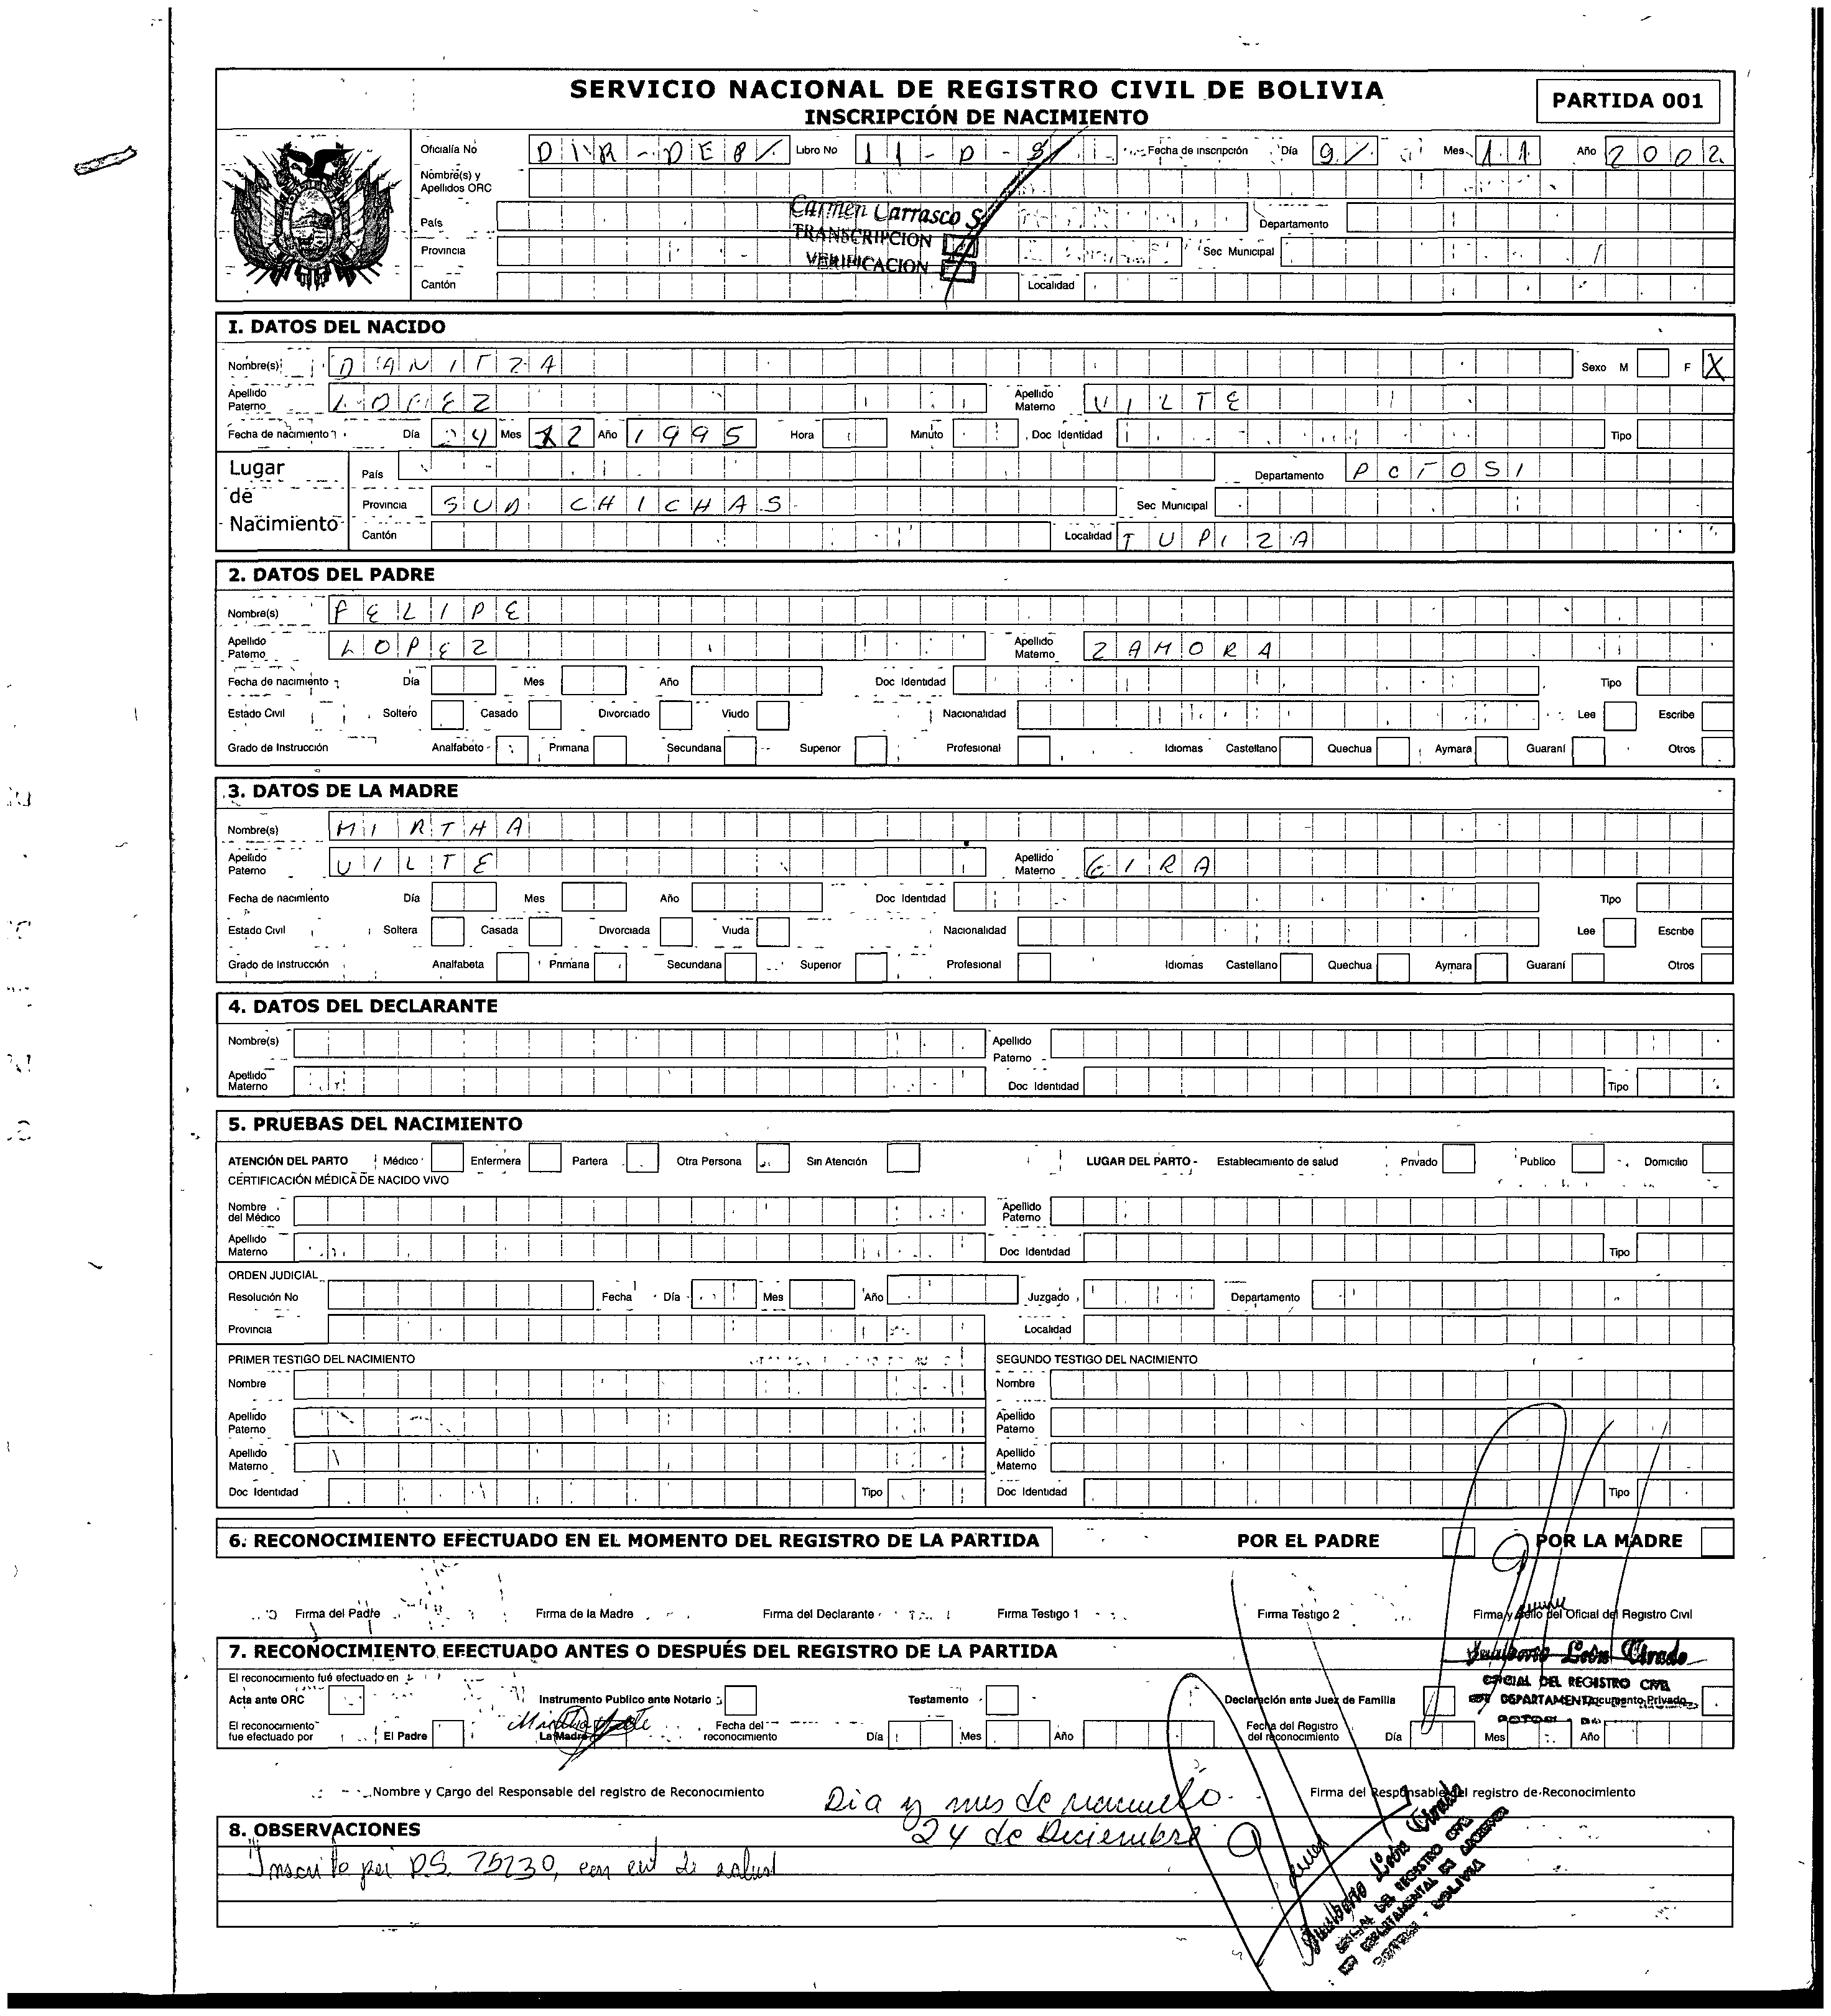 SERVICIO NACIONAL DE REGISTRO CIVIL DE BOLIVIA
INSCRIPCIÓN DE NACIMIENTO
PARTIDA 001
Oficialía No DIR-DEP/. Libro No 11-D-8/ Fecha de inscripción Día 9/. Mes 11 Año 2002
Nombre(s) y Apellidos ORC
País Departamento
Provincia Sec Municipal
Cantón Localidad
Carmen Carrasco S.
TRANSCRIPCION
VERIFICACION
I. DATOS DEL NACIDO
Nombre(s) DANITZA Sexo M F X
Apellido Paterno LOPEZ Apellido Materno VILTE
Fecha de nacimiento Día 24 Mes 12 Año 1995 Hora Minuto Doc Identidad Tipo
Lugar de Nacimiento
País Departamento POTOSI
Provincia SUD CHICHAS Sec Municipal
Cantón Localidad TUPIZA
2. DATOS DEL PADRE
Nombre(s) FELIPE
Apellido Paterno LOPEZ Apellido Materno ZAMORA
Fecha de nacimiento Día Mes Año Doc Identidad Tipo
Estado Civil Soltero Casado Divorciado Viudo Nacionalidad Lee Escribe
Grado de Instrucción Analfabeto Primaria Secundaria Superior Profesional Idiomas Castellano Quechua Aymara Guaraní Otros
3. DATOS DE LA MADRE
Nombre(s) MIRTHA
Apellido Paterno VILTE Apellido Materno GIRA
Fecha de nacimiento Día Mes Año Doc Identidad Tipo
Estado Civil Soltera Casada Divorciada Viuda Nacionalidad Lee Escribe
Grado de Instrucción Analfabeta Primaria Secundaria Superior Profesional Idiomas Castellano Quechua Aymara Guaraní Otros
4. DATOS DEL DECLARANTE
Nombre(s) Apellido Paterno
Apellido Materno Doc Identidad Tipo
5. PRUEBAS DEL NACIMIENTO
ATENCIÓN DEL PARTO Médico Enfermera Partera Otra Persona Sin Atención LUGAR DEL PARTO - Establecimiento de salud Privado Publico Domicilio
CERTIFICACIÓN MÉDICA DE NACIDO VIVO
Nombre del Médico Apellido Paterno
Apellido Materno Doc Identidad Tipo
ORDEN JUDICIAL
Resolución No Fecha Día Mes Año Juzgado Departamento
Provincia Localidad
PRIMER TESTIGO DEL NACIMIENTO SEGUNDO TESTIGO DEL NACIMIENTO
Nombre Nombre
Apellido Paterno Apellido Paterno
Apellido Materno Apellido Materno
Doc Identidad Tipo Doc Identidad Tipo
6. RECONOCIMIENTO EFECTUADO EN EL MOMENTO DEL REGISTRO DE LA PARTIDA POR EL PADRE POR LA MADRE
Firma del Padre Firma de la Madre Firma del Declarante Firma Testigo 1 Firma Testigo 2 Firma y Sello del Oficial del Registro Civil
7. RECONOCIMIENTO EFECTUADO ANTES O DESPUÉS DEL REGISTRO DE LA PARTIDA
León Tirado
OFICIAL DEL REGISTRO CIVIL
El reconocimiento fué efectuado en
Acta ante ORC Instrumento Publico ante Notario Testamento Declaración ante Juez de Familia Documento Privado
El reconocimiento fue efectuado por El Padre La Madre Fecha del reconocimiento Día Mes Año Fecha del Registro del reconocimiento Día Mes Año
Nombre y Cargo del Responsable del registro de Reconocimiento Firma del Responsable del registro de Reconocimiento
Dia y mes de
24 de Diciembre
8. OBSERVACIONES
Inscrito por D.S. 25230, con cert de salud